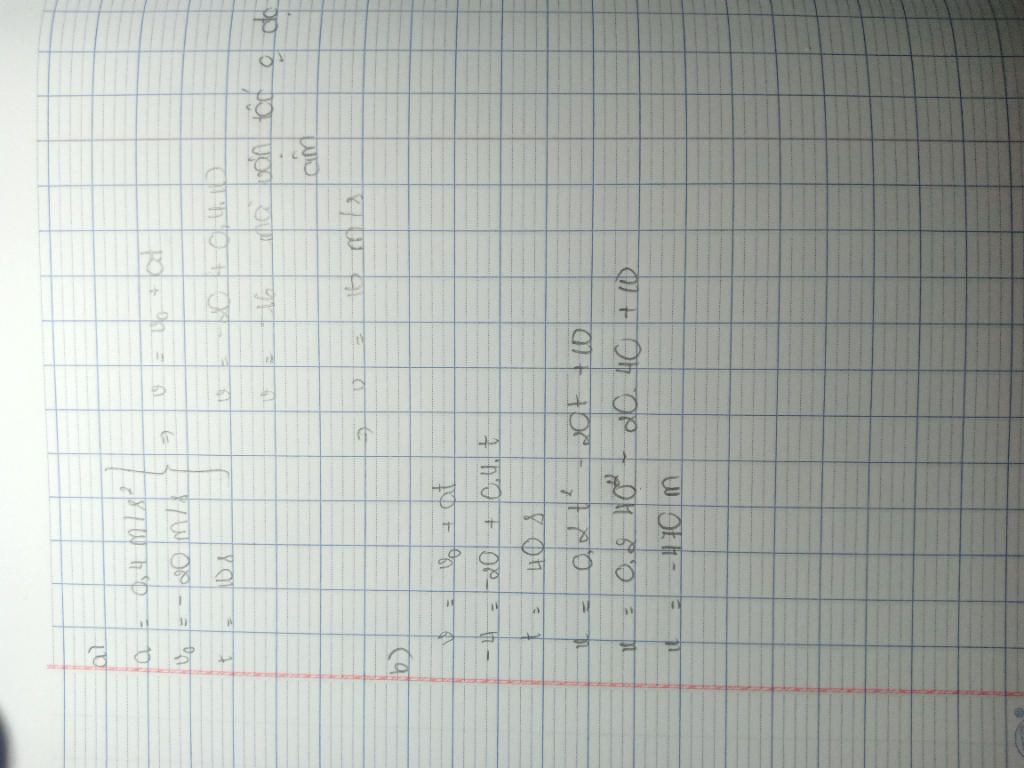 a)
a = 0,4 m/s² }
v₀ = -20 m/s } => v = v₀ + at
t = 10 s
v = -20 + 0,4.10
v = -16 mà vận tốc
=> v = 16 m/s
b)
v = v₀ + at
-4 = -20 + 0,4.t
t = 40 s
x = 0,2 t² - 20t + 10
x = 0,2 40² - 20.40 + 10
x = -470 m